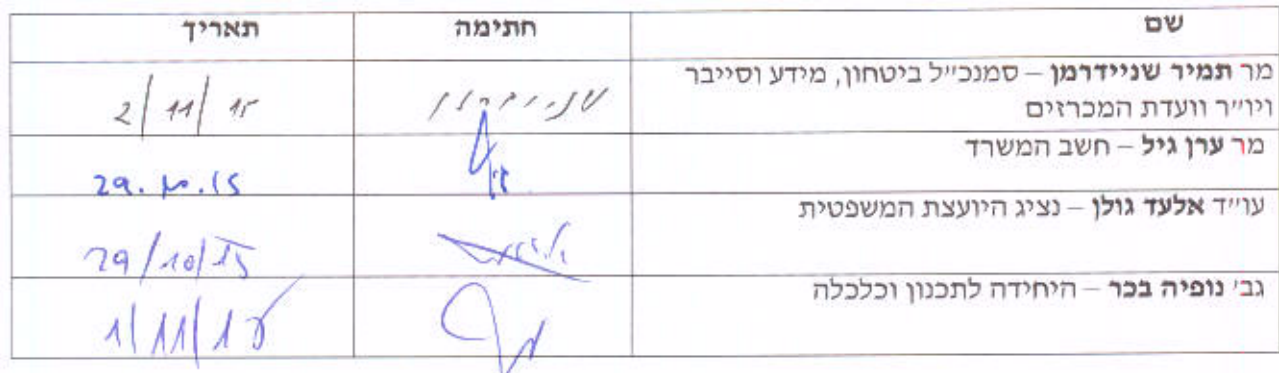 שם חתימה תאריך
מר תמיר שניידרמן – סמנכ״ל ביטחון, מידע וסייבר
ויו״ר וועדת המכרזים שניידרמן 2/11/15
מר ערן גיל – חשב המשרד 29.10.15
עו״ד אלעד גולן – נציג היועצת המשפטית 29/10/15
גב׳ נופיה בכר – היחידה לתכנון וכלכלה 1/11/15